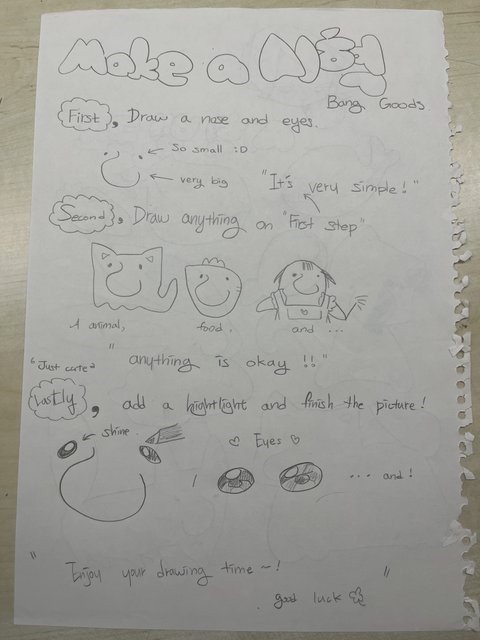 Make a 시험
Bang Goods
First, Draw a nose and eyes.
So small :D
very big
"It's very simple!"
Second, Draw anything on "First step"
A animal, food, and ...
"anything is okay !!"
"Just cute"
Lastly, add a hightlight and finish the picture!
shine
♡ Eyes ♡
/ ... and!
"Enjoy your drawing time ~! "
good luck